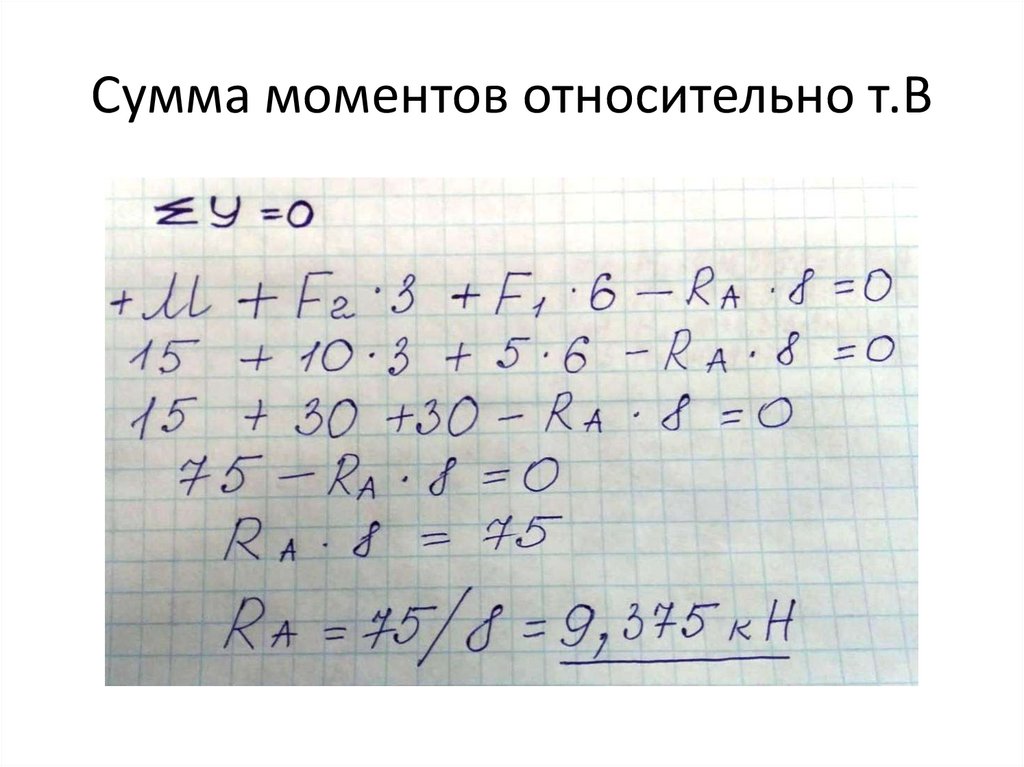 Сумма моментов относительно т.В
ΣУ=0
+М + F₂·3 + F₁·6 – RА·8 = 0
15 + 10·3 + 5·6 – RА·8 = 0
15 + 30 + 30 – RА·8 = 0
75 – RА·8 = 0
RА·8 = 75
RА = 75/8 = 9,375 кН